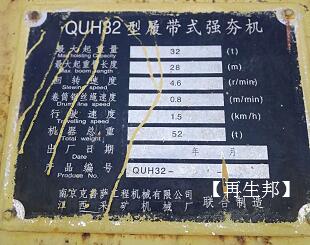 QUH32 型履带式强夯机
最大起重量 32 (t)
Max holsting Capacity
最大起重臂长度 28 (m)
Max boom length
回转速度 4.6 (r/min)
Slewing speed
卷筒钢丝绳速度 0.8 (m/min)
Drum line speed
行驶速度 1.5 (km/h)
Traveling speed
机器总重 52 (t)
Total weight
出厂日期 年 月
Date
产品编号 QUH32-
Production No.
南京克鲁萨工程机械有限公司
江西采矿机械厂 联合制造
【再生邦】